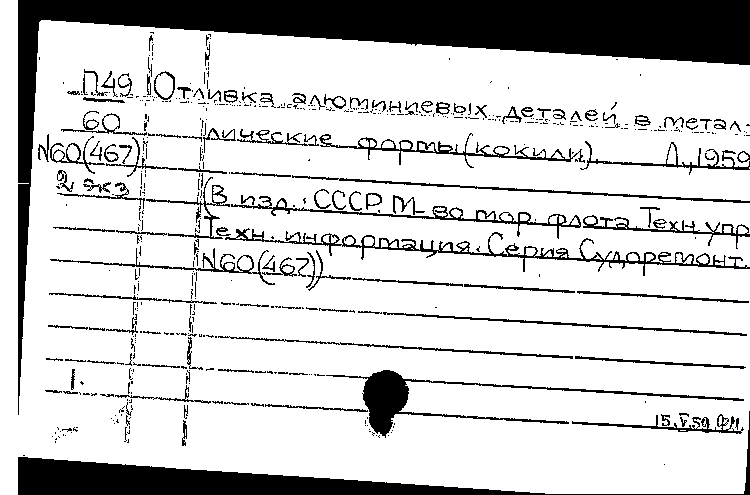 П49 Отливка алюминиевых деталей в метал-
60 лические формы (кокили). Л., 1959
N60(467)
2 экз (В изд.: СССР. М-во мор. флота. Техн. упр
Техн. информация. Серия Судоремонт.
N60(467))
1.
15.V.59 ФМ.